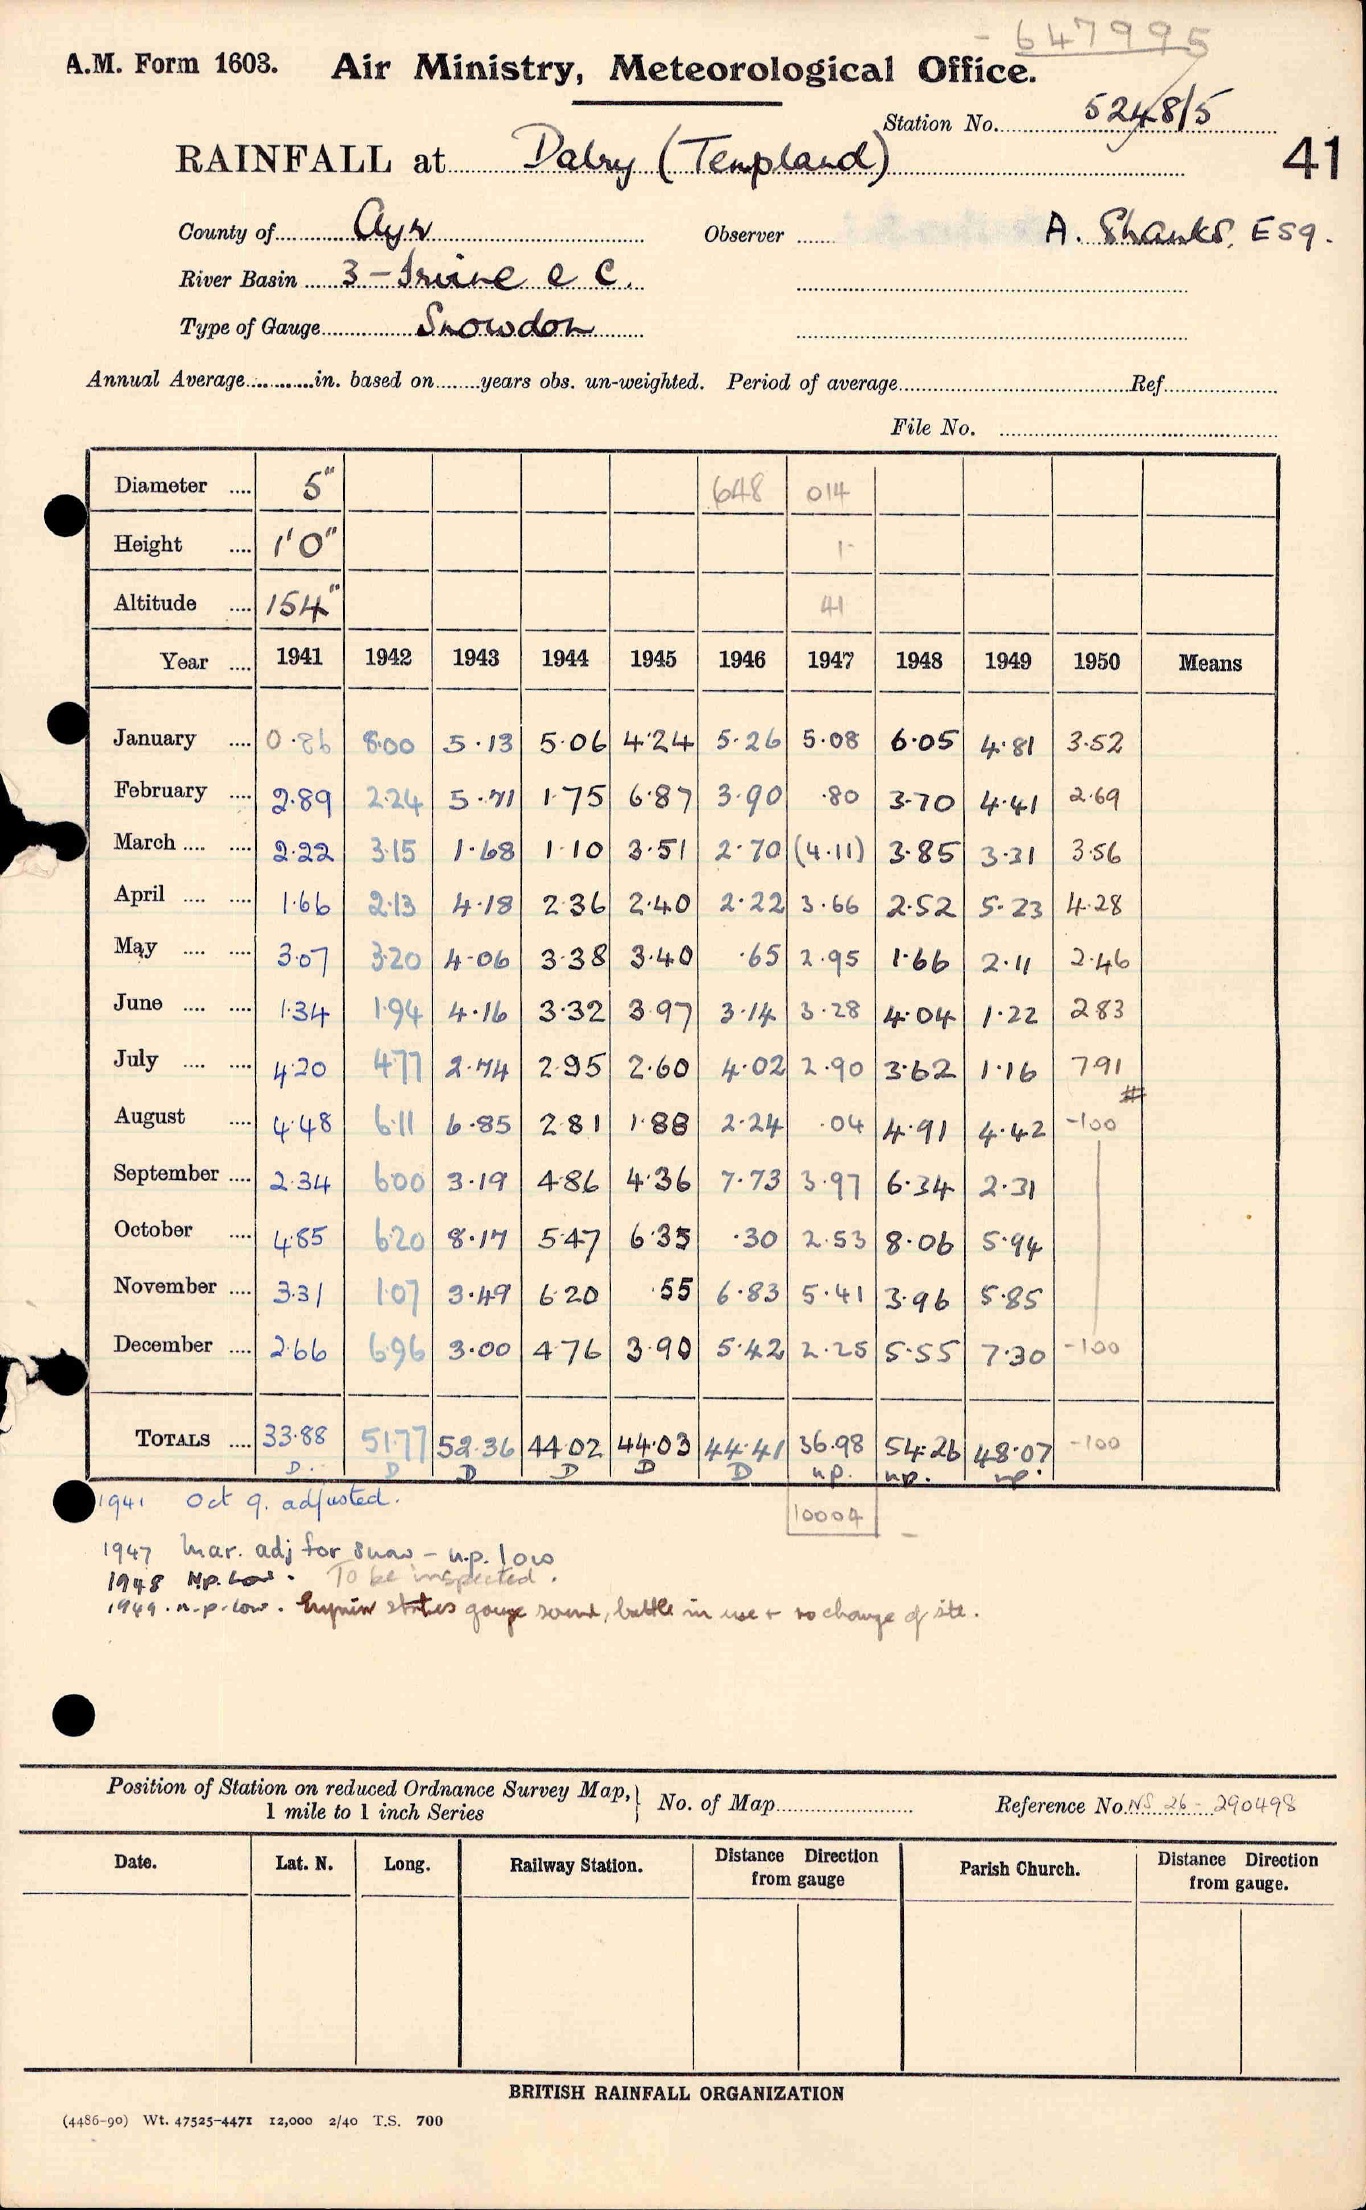 - 647995
A.M. Form 1603. Air Ministry, Meteorological Office.
Station No. 5248/5
41
RAINFALL at Dalry (Templand)
County of Ayr Observer A. Shanks, ESq.
River Basin 3 - Irvine & C.
Type of Gauge Snowdon
Annual Average in. based on years obs. un-weighted. Period of average Ref.
File No.
Diameter 5" 648 014
Height 1'0" 1-
Altitude 154" 41
Year 1941 1942 1943 1944 1945 1946 1947 1948 1949 1950 Means
January 0.86 8.00 5.13 5.06 4.24 5.26 5.08 6.05 4.81 3.52
February 2.89 2.24 5.71 1.75 6.87 3.90 .80 3.70 4.41 2.69
March 2.22 3.15 1.68 1.10 3.51 2.70 (4.11) 3.85 3.31 3.56
April 1.66 2.13 4.18 2.36 2.40 2.22 3.66 2.52 5.23 4.28
May 3.07 3.20 4.06 3.38 3.40 .65 2.95 1.66 2.11 2.46
June 1.34 1.94 4.16 3.32 3.97 3.14 3.28 4.04 1.22 2.83
July 4.20 4.77 2.74 2.95 2.60 4.02 2.90 3.62 1.16 7.91
August 4.48 6.11 6.85 2.81 1.88 2.24 .04 4.91 4.42 -100 #
September 2.34 6.00 3.19 4.86 4.36 7.73 3.97 6.34 2.31
October 4.85 6.20 8.17 5.47 6.35 .30 2.53 8.06 5.94
November 3.31 1.07 3.49 6.20 .55 6.83 5.41 3.96 5.85
December 2.66 6.96 3.00 4.76 3.90 5.42 2.25 5.55 7.30 -100
TOTALS 33.88 51.77 52.36 44.02 44.03 44.41 36.98 54.26 48.07 -100
D. D D D D D n.p. n.p. n.p.
1941 Oct 9. adjusted.
10004 -
1947 Mar. adj for snow - n.p. low
1948 n.p. low. To be inspected.
1949. n.p. low. states gauge sound, bottle in use + no change of site.
Position of Station on reduced Ordnance Survey Map, 1 mile to 1 inch Series } No. of Map Reference No. NS 26 - 290498
Date. Lat. N. Long. Railway Station. Distance Direction from gauge Parish Church. Distance Direction from gauge.
BRITISH RAINFALL ORGANIZATION
(4486-90) Wt. 47525-4471 12,000 2/40 T.S. 700